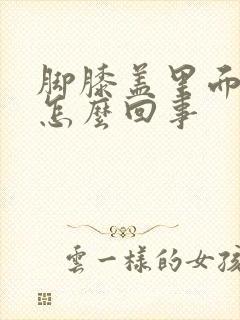 脚膝盖里面
怎麼回事
雲一樣的女孩